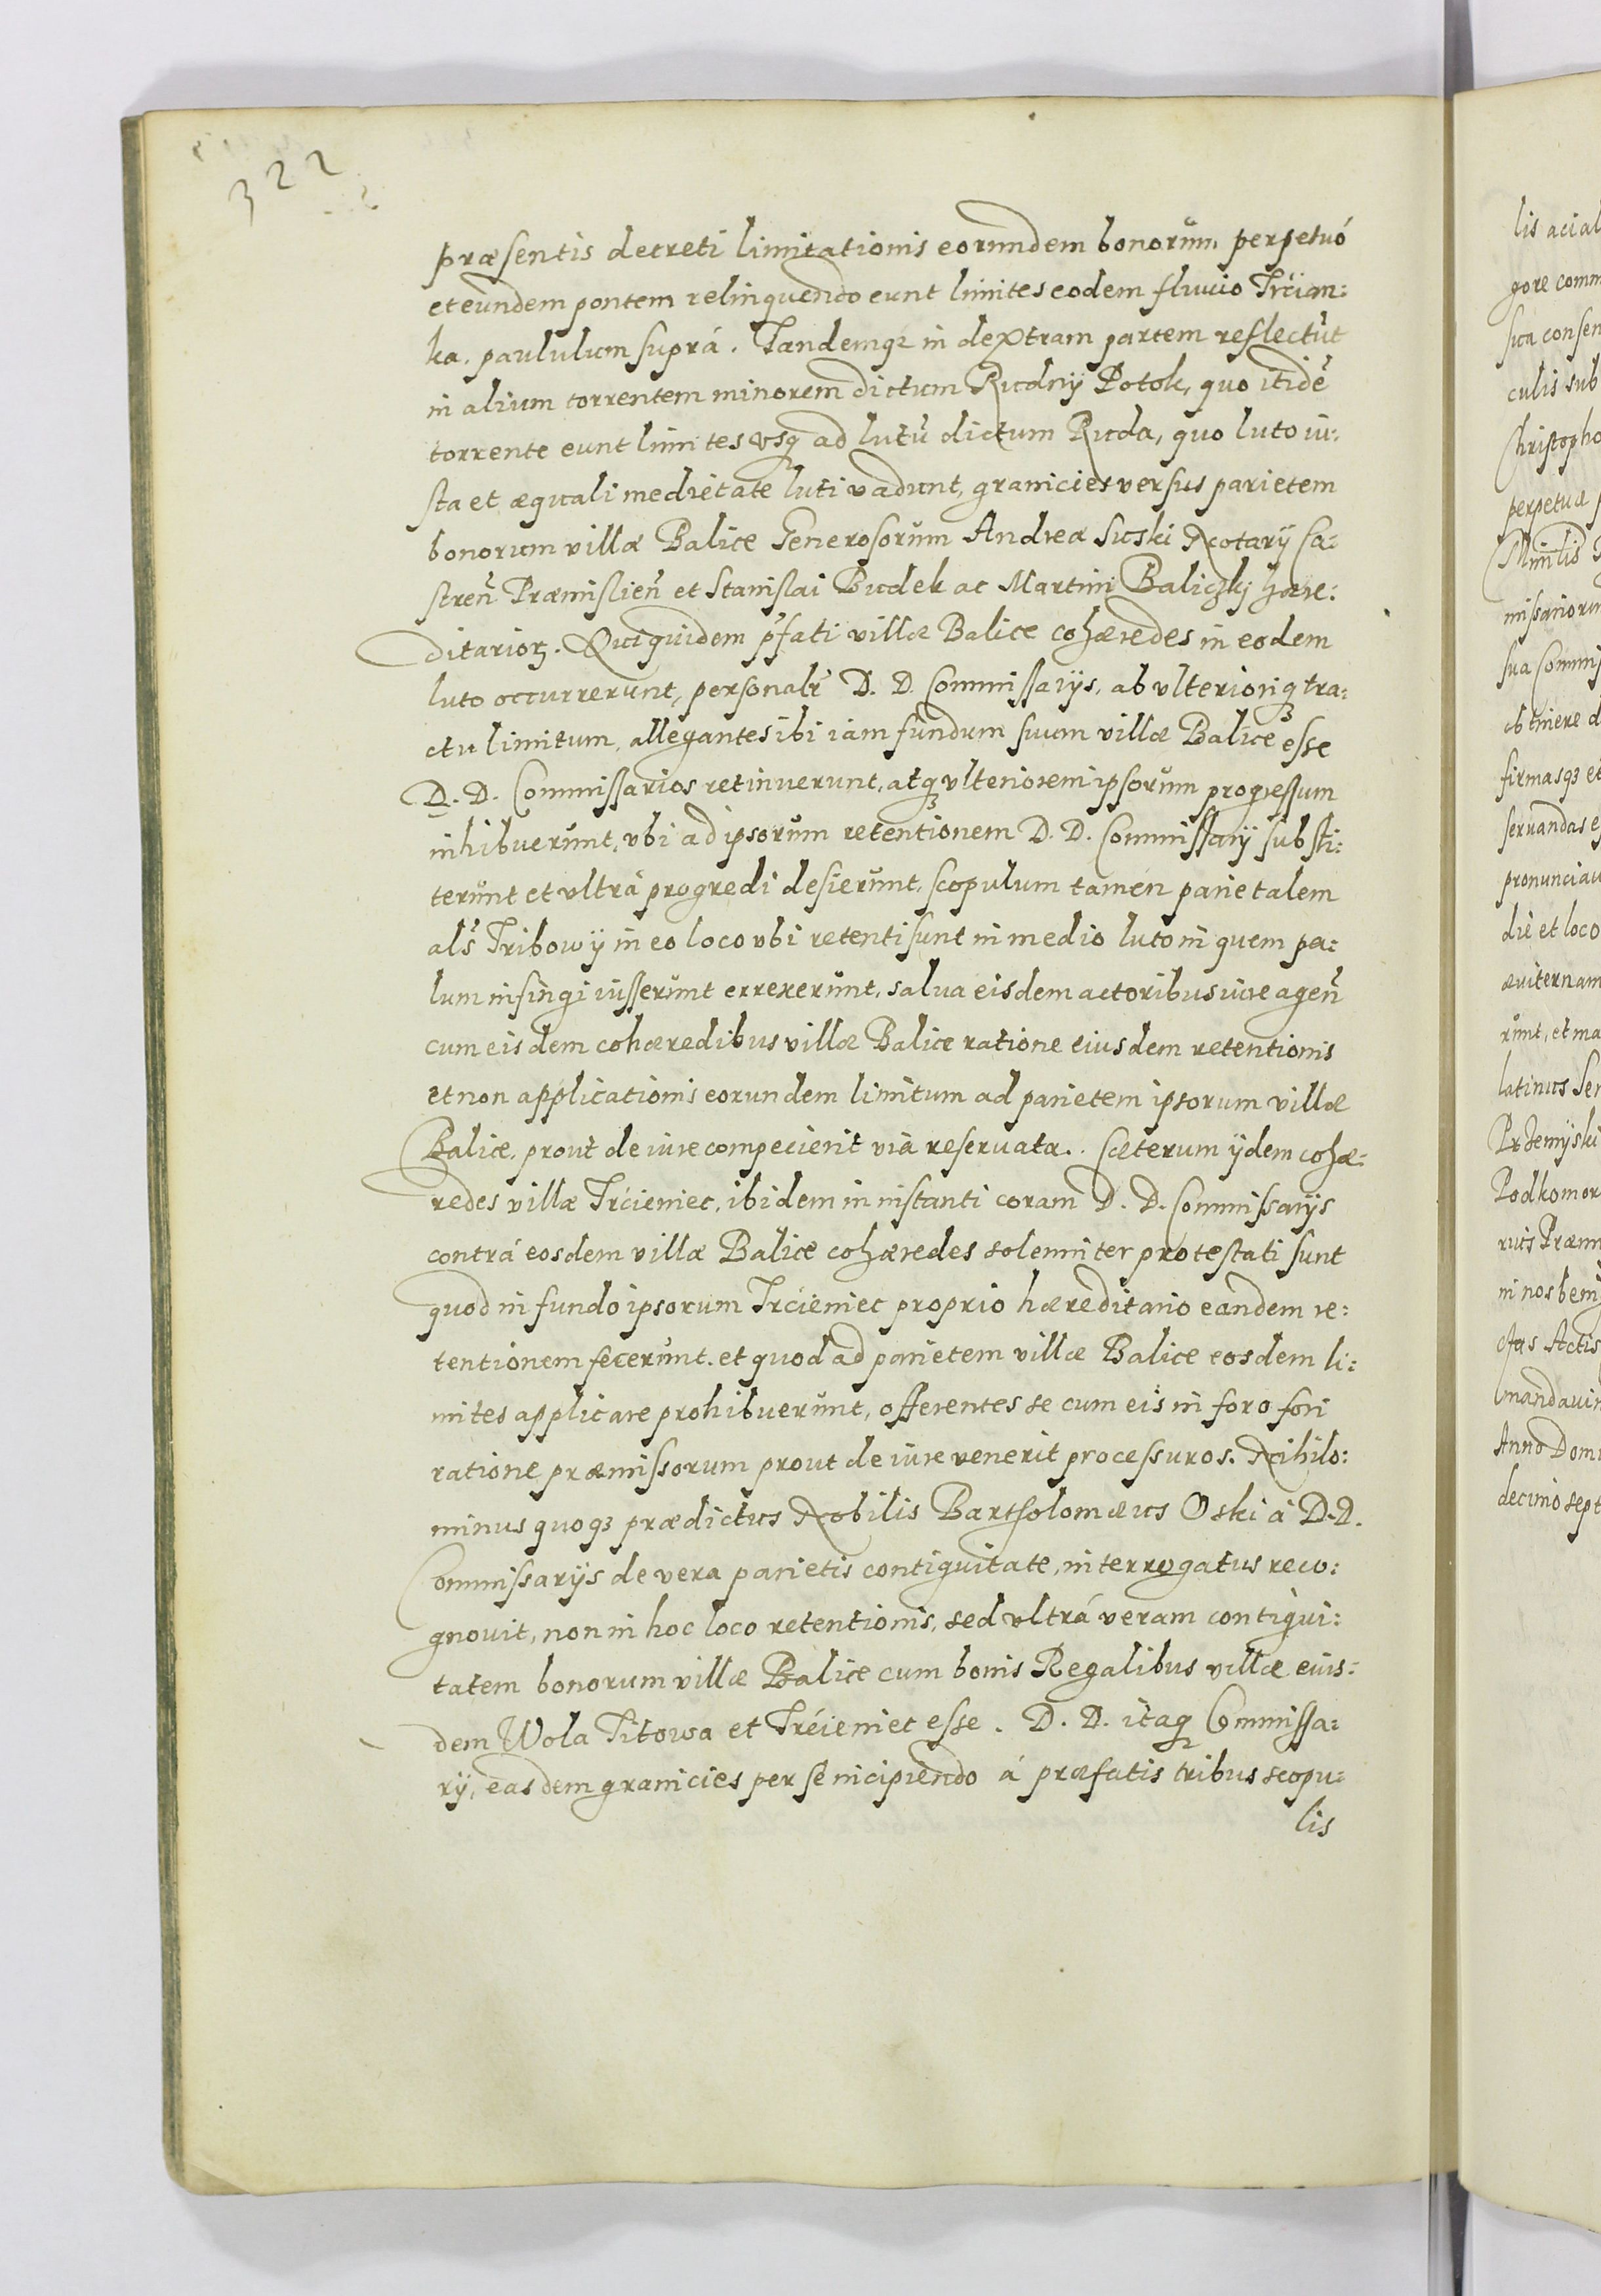 322
præsentis decreti limitationis eorundem bonorum, perpetuó
et eundem pontem relinquendo eunt limites eodem fluuio Trcian:
ka, paululum suprá. Tandemq3 in dextram partem reflectũt
in alium torrentem minorem dictum Rudnÿ Potok, quo itidẽ
torrente eunt limites vsq3 ad lutũ dictum Ruda, quo luto iu:
sta et æquali medietate luti vadunt, granicies versus parietem
bonorum villæ Balice Generosorum Andreæ Suski Notarÿ Ca:
streñ Præmislieñ et Stanislai Budek ac Martini Baliczkÿ hære:
ditarioꝝ. Qui quidem p̃fati villæ Balice cohæredes in eodem
luto occurrerunt, personalr̃ D. D. Commissarijs, ab vlterioriq3 tra:
ctu limitum, allegantes ibi iám fundum suum villæ Balice esse
D. D. Commissarios retinuerunt, atq3 vlteriorem ipsorum progressum
inhibuerunt, vbi ad ipsorum retentionem D. D. Commissarÿ substi:
terunt et vltrá progredi desierunt, scopulum tamen parietalem
als̃ Tribowÿ in eo loco vbi retenti sunt in medio luto in quem pa:
lum infingi iusserunt errexerunt, salua eisdem actoribus iure ageñ
cum eisdem cohæredibus villæ Balice ratione eiusdem retentionis
et non applicationis eorundem limitum ad parietem ipsorum villæ
Balice, prout de iure compecierit via reseruata. Cæterum ÿdem cohæ:
redes villæ Trcieniec, ibidem in instanti coram D. D. Commissarijs
contrá eosdem villæ Balice cohæredes solemniter protestati sunt
quod in fundo ipsorum Trcieniec proprio hæreditario eandem re:
tentionem fecerunt. et quod ad parietem villæ Balice eosdem li:
mites applicare prohibuerunt, offerentes se cum eis in foro fori
ratione præmissorum prout de iure venerit processuros. Nihilo:
minus quoq3 prædictus Nobilis Bartholomæus Oski á D. D.
Commissarijs de vera parietis contiguitate, interrogatus reco:
gnouit, non in hoc loco retentionis, sed vltrá veram contigui:
tatem bonorum villæ Balice cum bonis Regalibus villæ eius:
dem Wola Titowa et Trcieniec esse. D. D. itaq3 Commissa:
rÿ, easdem granicies per se incipiendo á præfatis tribus scopu:
lis